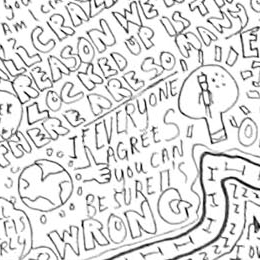 AM I C
ALL CRAZY
REASON WE
LOCKED UP IS TH
THERE ARE SO MANY
IF EVERYONE
AGREES
YOU CAN
BE SURE IT'S
WRONG